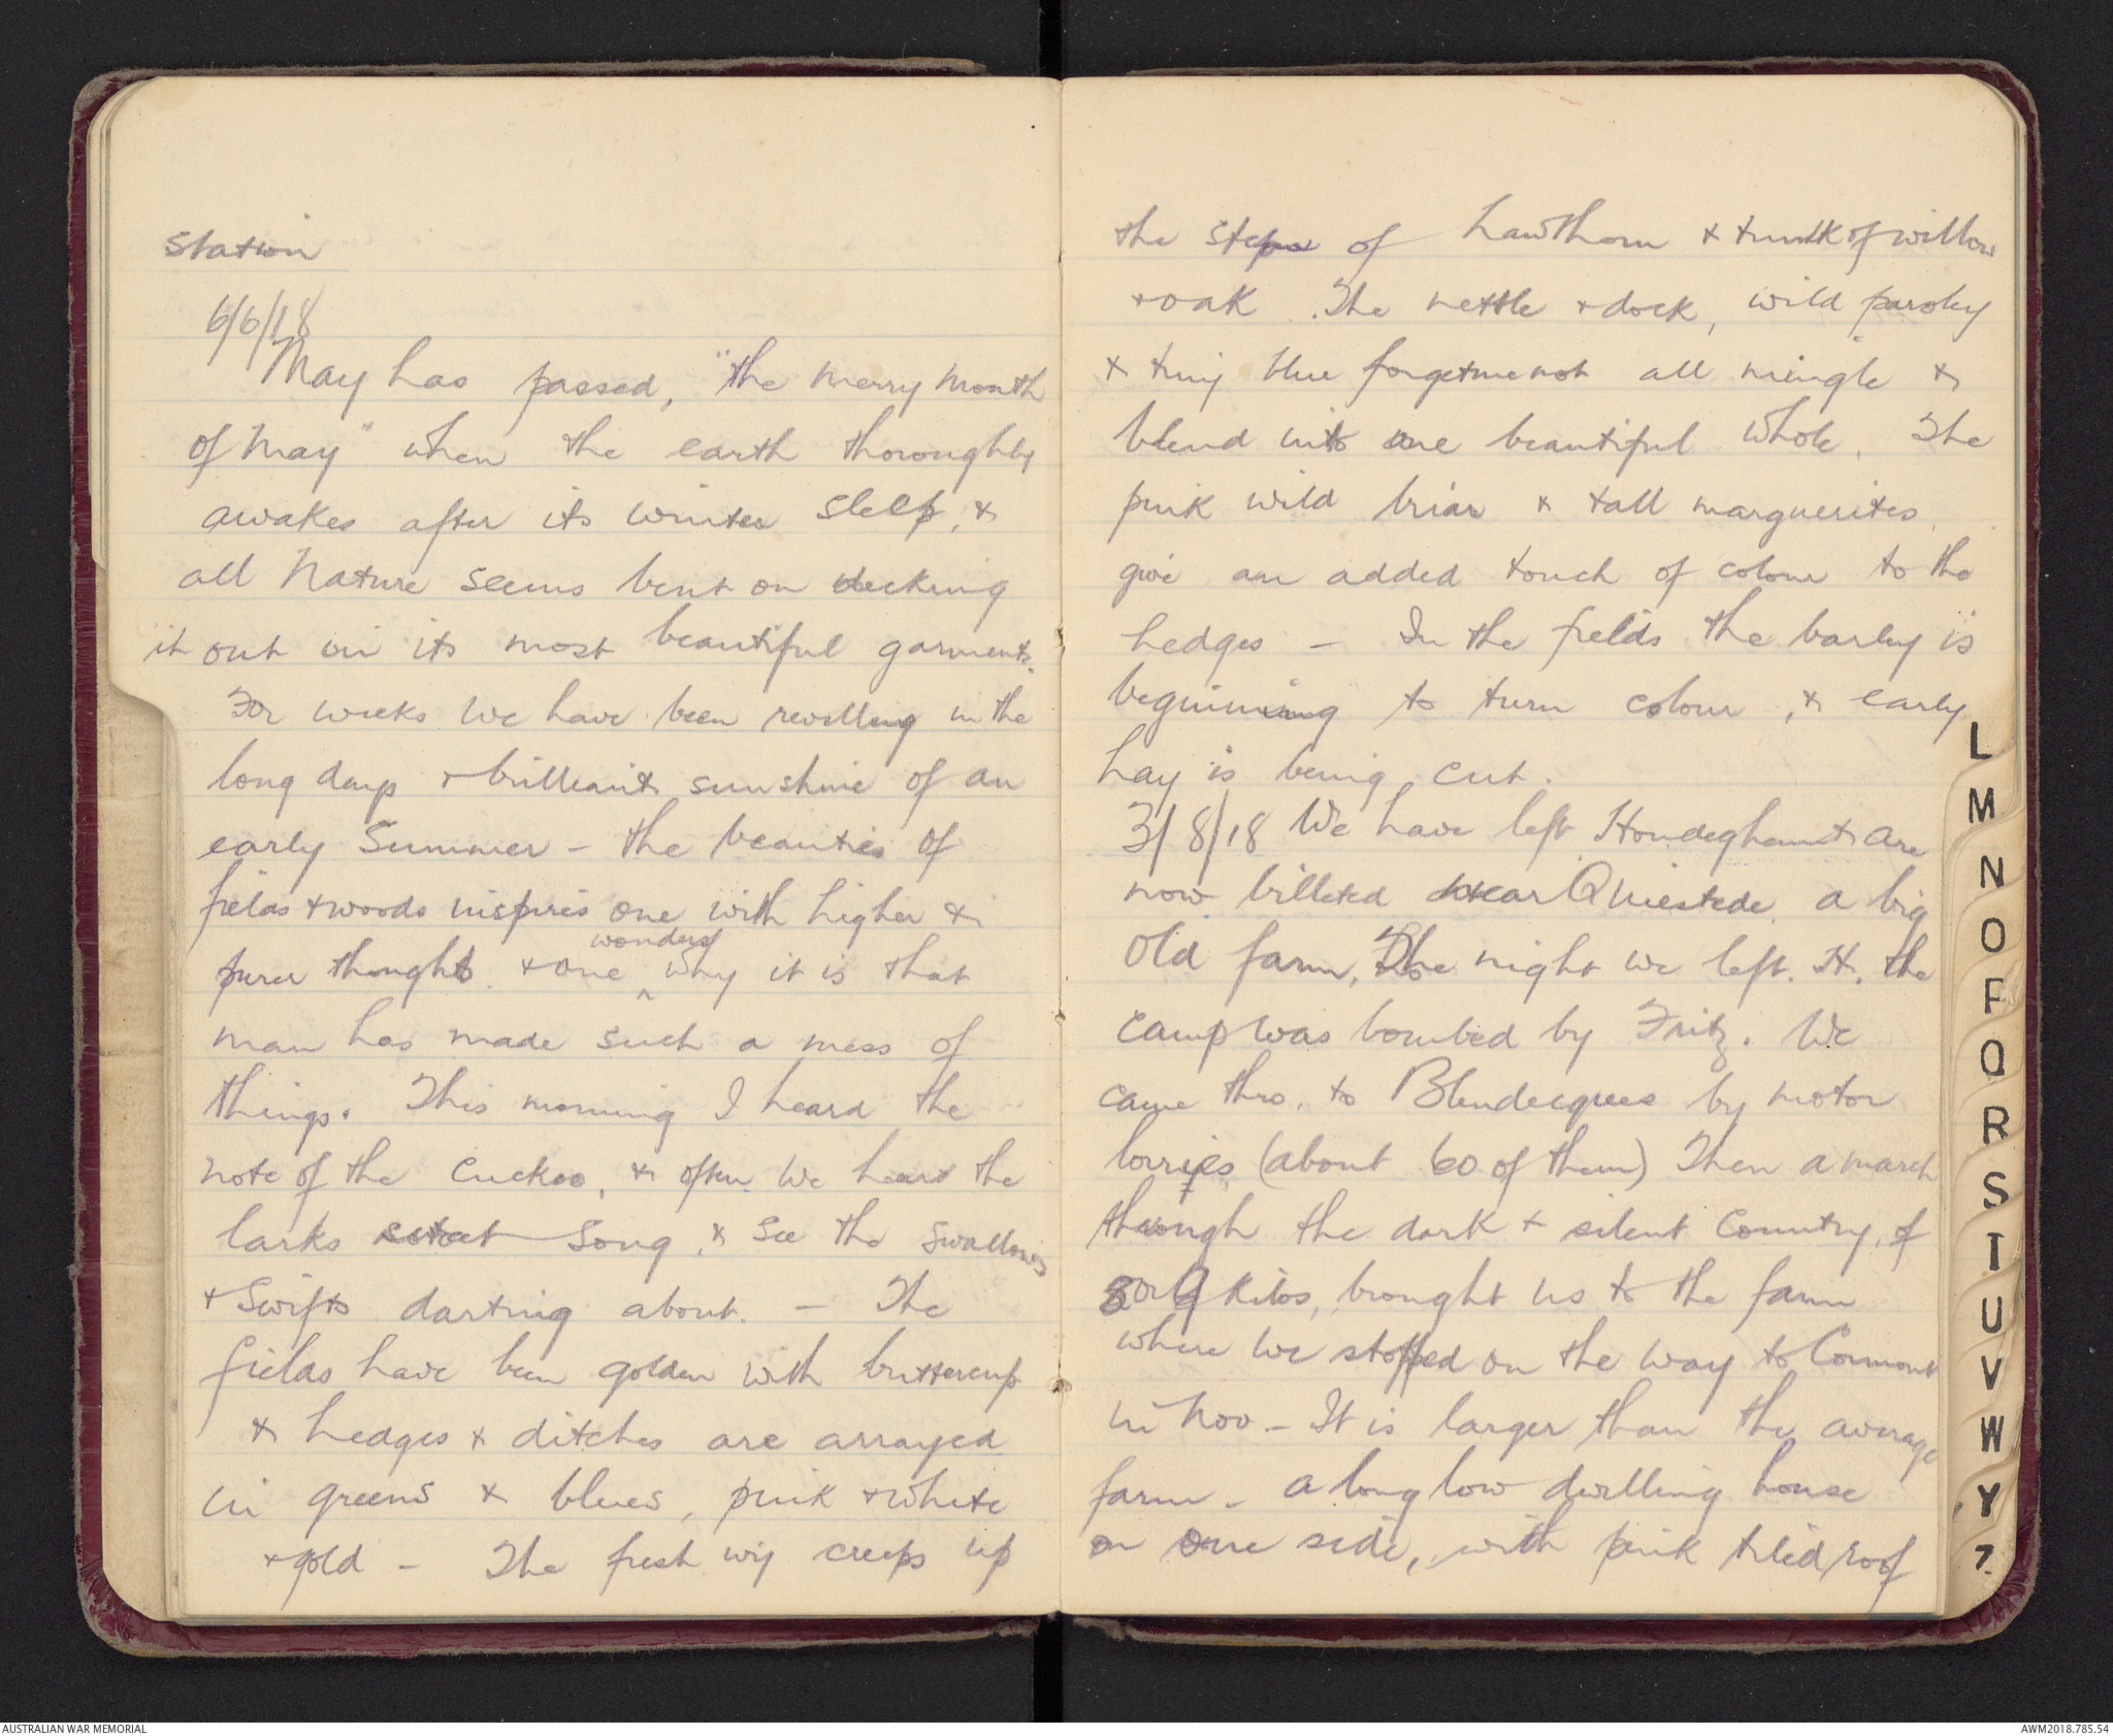 Station
6/6/18
May has passed, "the merry month
of May" when the earth thoroughly
awakes after its winter sleep, &
all Nature seems bent on decking
it out in its most beautiful garments.
For weeks we have been revelling in the
long days & brilliant sunshine of an
early Summer - the beauties of
fields & woods inspires one with higher &
purer thoughts & one wonders why it is that
man has made such a mess of
things. This morning I heard the
note of the Cuckoo, & often we hear the
larks song, & see the swallows
& Swifts darting about. - The
fields have been golden with buttercup
& hedges & ditches are arrayed
in greens & blues, pink & white
& gold - The fresh ivy creeps up
the steps of hawthorn & trunk of willow
& oak. The nettle & dock, wild parsley
& tiny blue forgetmenot all mingle &
blend into one beautiful whole. The
pink wild briar & tall marguerites
give an added touch of colour to the
hedges - In the fields the barley is
beginning to turn colour, & early
hay is being cut.
3/8/18 We have left Hondeghem & are
now billeted near Quiestede. a big
old farm, The night we left H. the
camp was bombed by Fritz. We
came thro. to Blendecques by motor
lorries (about 60 of them) Then a march
through the dark & silent Country, of
8 or 9 kilos, brought us to the farm
where we stopped on the way to Cormont
in Nov - It is larger than the average
farm - a long low dwelling house
on one side, with pink tiled roof
L
M
N
O
P
Q
R
S
T
U
V
W
Y
Z
AUSTRALIAN WAR MEMORIAL
AWM2018.785.54